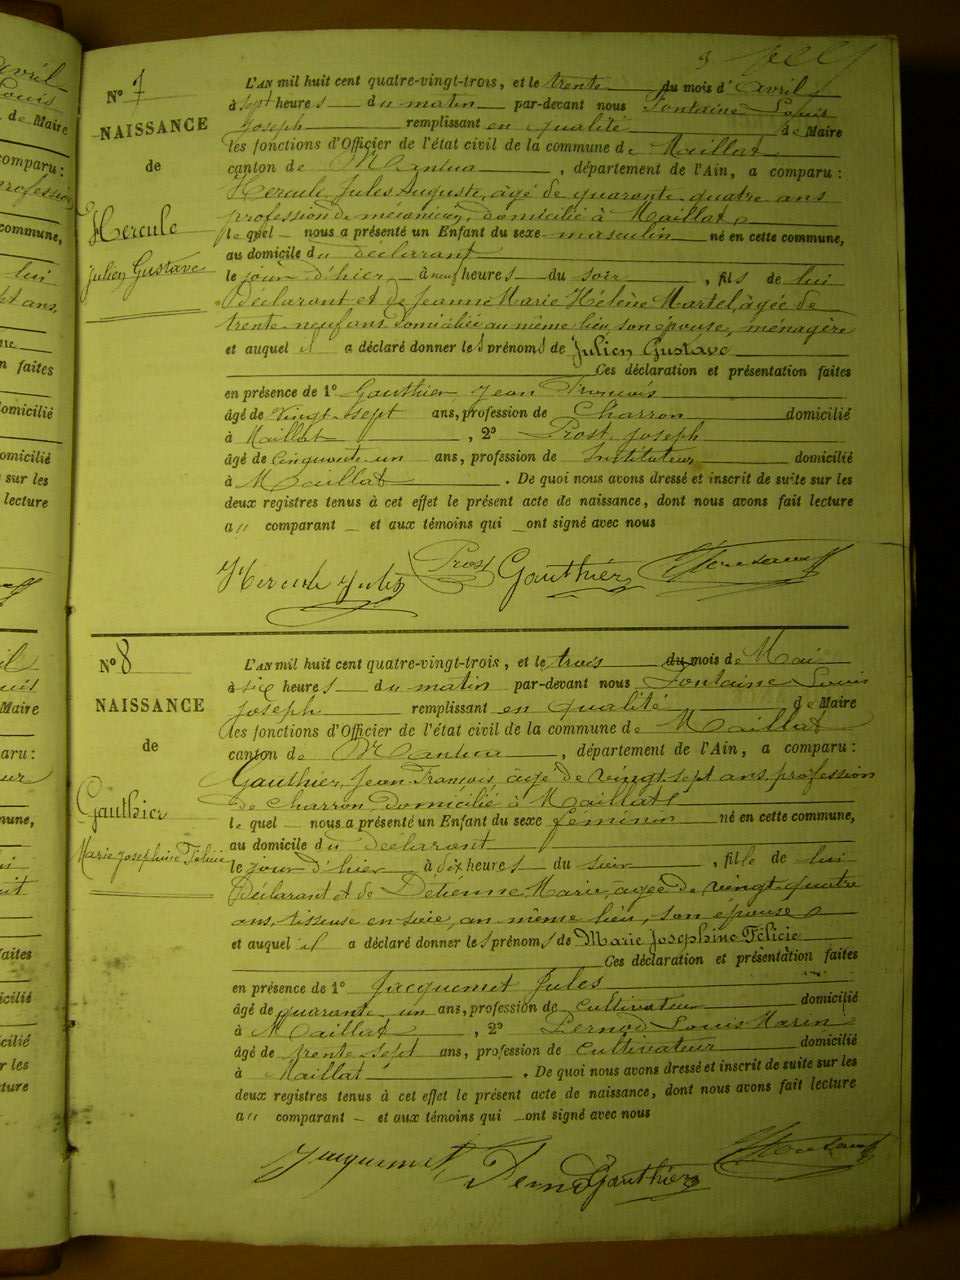 3
N° 7
NAISSANCE
de
Hercule
Julien Gustave
L'AN mil huit cent quatre-vingt-trois, et le trente du mois d'avril
à sept heures du matin par-devant nous Fontaine Louis
Joseph remplissant en qualité de Maire
les fonctions d'Officier de l'état civil de la commune de Maillat
canton de Nantua, département de l'Ain, a comparu :
Hercule Jules Auguste, âgé de quarante quatre ans
profession de mécanicien, domicilié à Maillat
lequel nous a présenté un Enfant du sexe masculin né en cette commune,
au domicile du déclarant
le jour d'hier à neuf heures du soir, fils de lui
Déclarant et de Jeanne Marie Hélène Martel, âgée de
trente neuf ans domiciliée au même lieu, son épouse, ménagère
et auquel il a déclaré donner les prénoms de Julien Gustave
Ces déclaration et présentation faites
en présence de 1° Gauthier Jean François
âgé de vingt-sept ans, profession de Charron domicilié
à Maillat, 2° Prost Joseph
âgé de cinquante-un ans, profession de Instituteur domicilié
à Maillat. De quoi nous avons dressé et inscrit de suite sur les
deux registres tenus à cet effet le présent acte de naissance, dont nous avons fait lecture
a,, comparant et aux témoins qui ont signé avec nous
Hercule Jules Prost Gauthier Fontaine
N° 8
NAISSANCE
de
Gauthier
Marie Josephine Félicie
L'AN mil huit cent quatre-vingt-trois, et le trois du mois de Mai
à six heures du matin par-devant nous Fontaine Louis
Joseph remplissant en qualité de Maire
les fonctions d'Officier de l'état civil de la commune de Maillat
canton de Nantua, département de l'Ain, a comparu :
Gauthier, Jean François, âgé de vingt sept ans, profession
de charron domicilié à Maillat
lequel nous a présenté un Enfant du sexe féminin né en cette commune,
au domicile du déclarant
le jour d'hier à dix heures du soir, fille de lui
Déclarant et de Détienne Marie, âgée de vingt-quatre
ans, tisseuse en soie, au même lieu, son épouse
et auquel il a déclaré donner les prénoms de Marie Josephine Félicie
Ces déclaration et présentation faites
en présence de 1° Jacquemet Jules
âgé de quarante un ans, profession de cultivateur domicilié
à Maillat, 2° Pernod Louis Marin
âgé de trente-sept ans, profession de cultivateur domicilié
à Maillat. De quoi nous avons dressé et inscrit de suite sur les
deux registres tenus à cet effet le présent acte de naissance, dont nous avons fait lecture
a,, comparant et aux témoins qui ont signé avec nous
Jacquemet Pernod Gauthier Fontaine